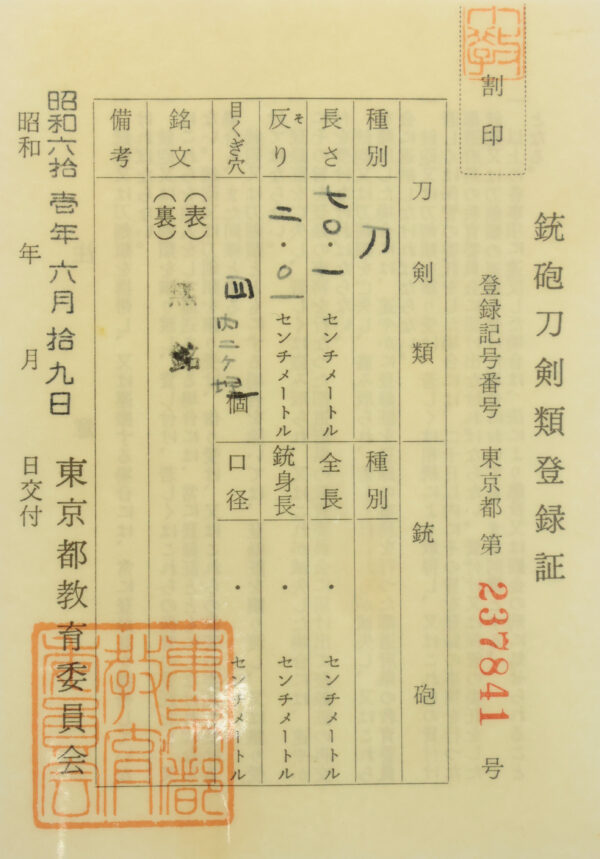 銃砲刀剣類登録証
割印
登録記号番号 東京都 第 237841 号
刀剣類
種別 刀
長さ 七〇・一 センチメートル
反り そ 二・〇一 センチメートル
目くぎ穴 四 内二ヶ埋 個
銘文 (表) (裏) 無銘
備考
銃砲
種別
全長 ・ センチメートル
銃身長 ・ センチメートル
口径 ・ センチメートル
昭和六拾壱年六月拾九日
昭和 年 月 日交付
東京都教育委員会
東京都教育委員会